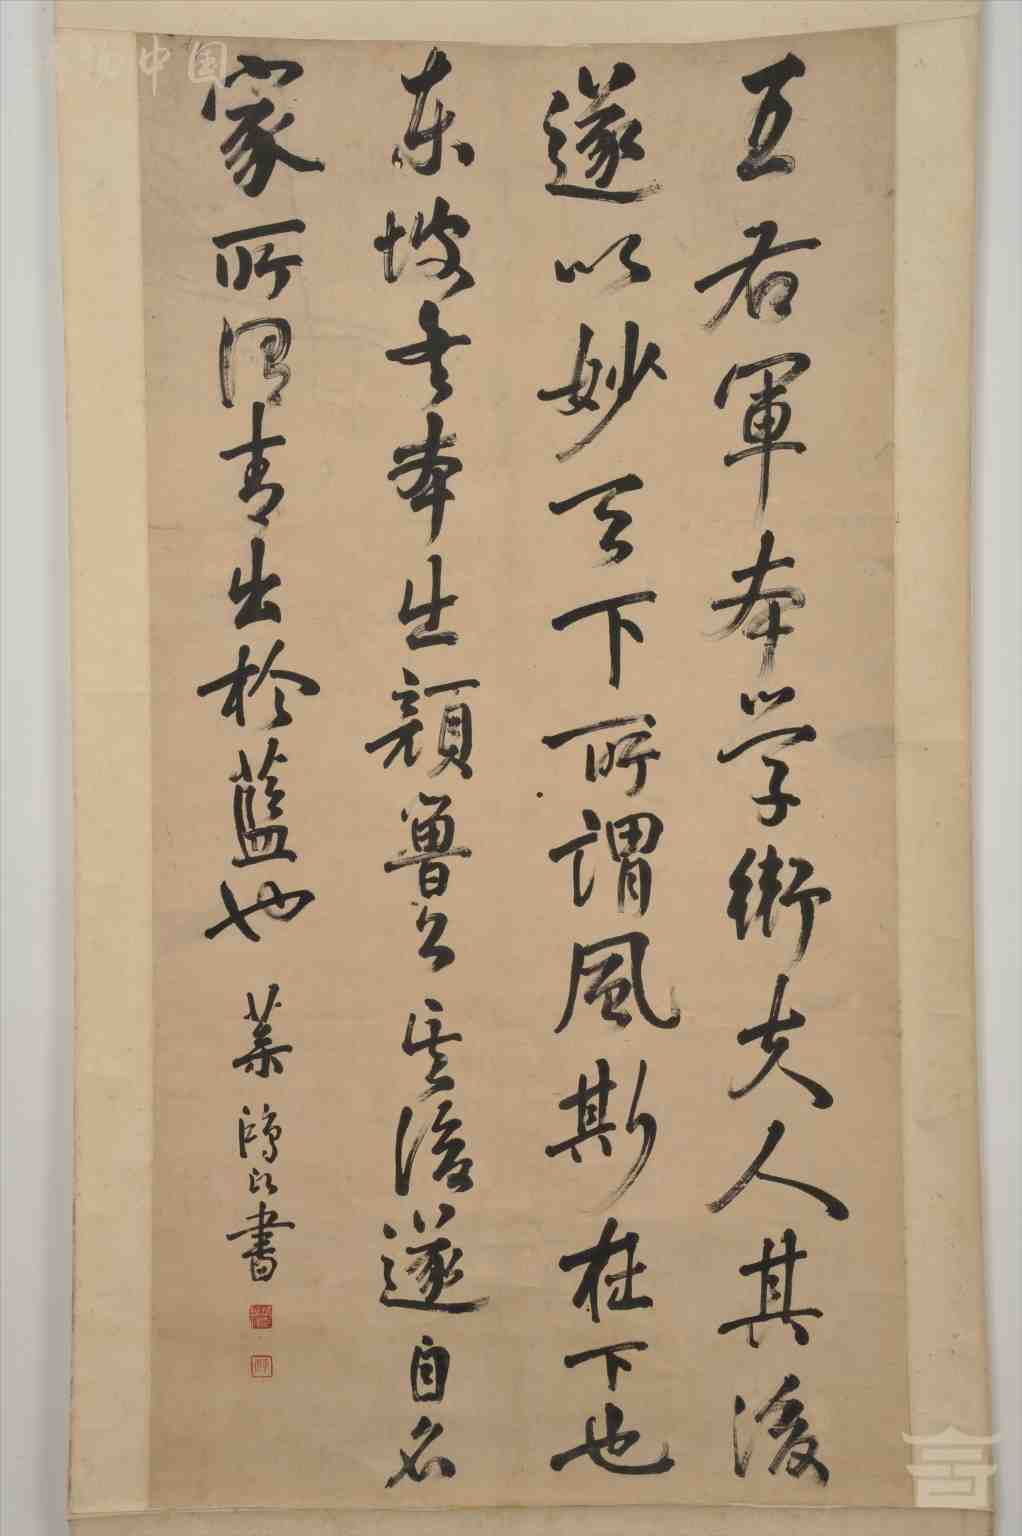 王右軍本学衛夫人其後
遂以妙天下所謂風斯在下也
東坡書本出顏魯公其後遂自名
家所謂青出於藍也
葉
書
中国